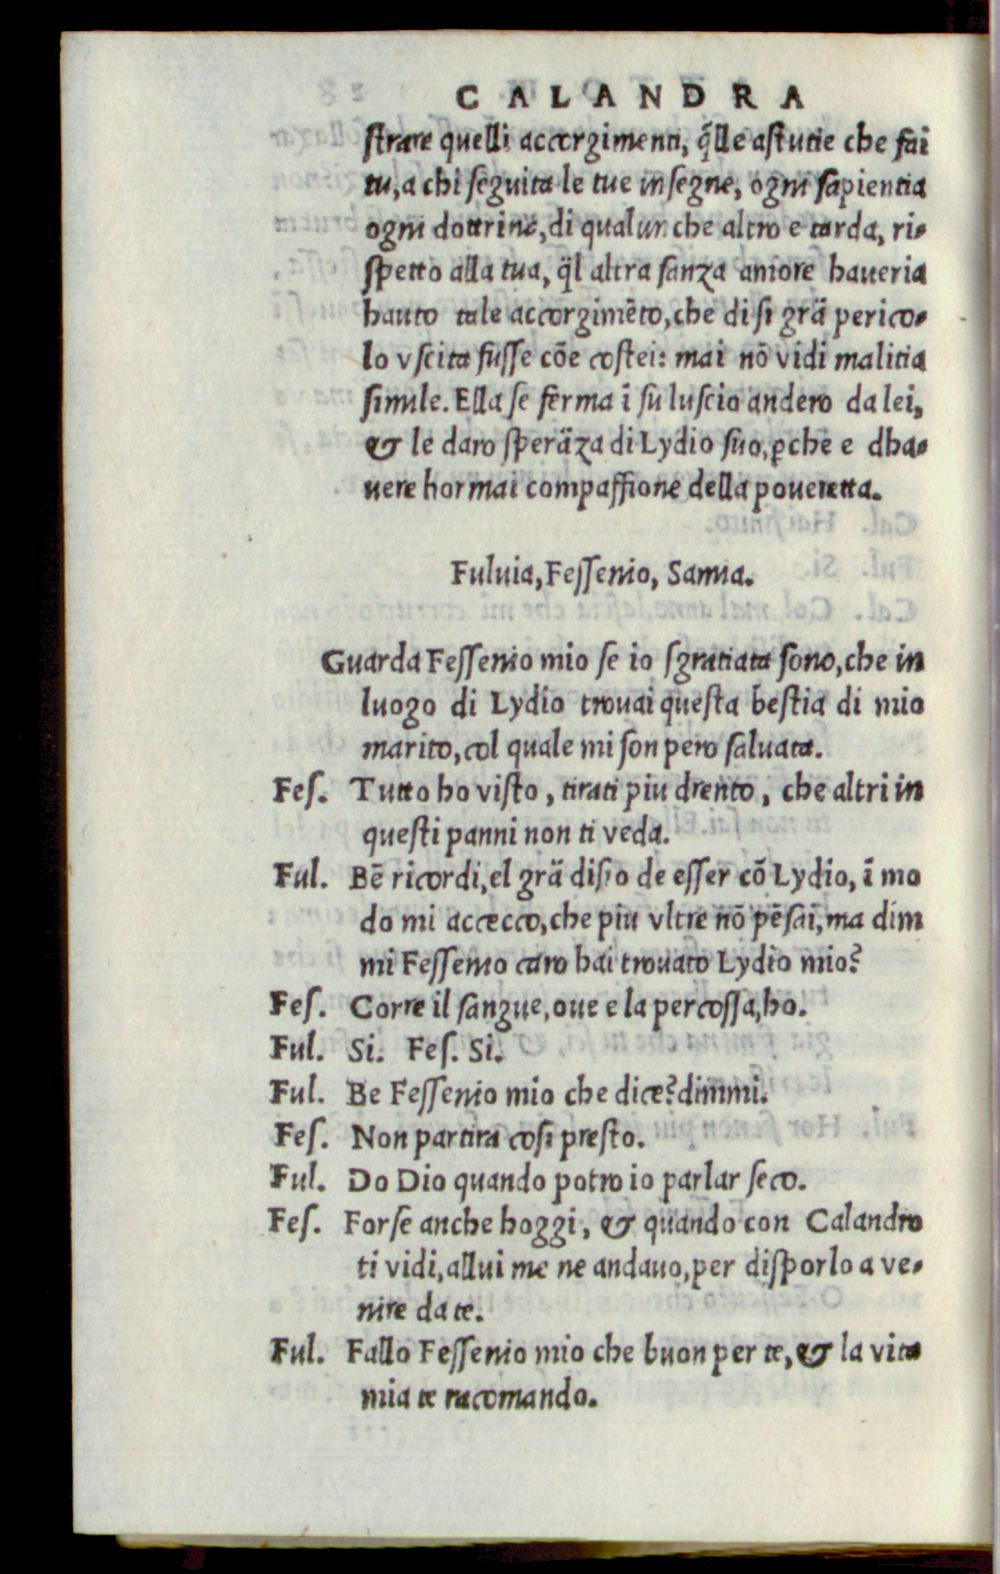 CALANDRA
ſtrare quelli accorgimenti, q̃lle aſtutie che fai
tu, a chi ſeguita le tue inſegne, ogni ſapientia
ogni dottrina, di qualun che altro e tarda, ri-
ſpetto alla tua, q̃l altra ſanza amore haueria
hauto tale accorgimẽto, che di ſi grã perico-
lo vſcita fuſſe cõe coſtei: mai nõ vidi malitia
ſimile. Ella ſe ferma ĩ ſu luſcio andero da lei,
& le daro ſperãza di Lydio ſuo, ꝑche e dha-
uere hormai compaſſione della poueretta.
Fuluia, Feſſenio, Samia.
Guarda Feſſenio mio ſe io ſgratiata ſono, che in
luogo di Lydio trouai queſta beſtia di mio
marito, col quale mi ſon pero ſaluata.
Feſ. Tutto ho viſto, tirati piu drento, che altri in
queſti panni non ti veda.
Ful. Bẽ ricordi, el grã diſio de eſſer cõ Lydio, ĩ mo
do mi accecco, che piu vltre nõ pẽſai, ma dim
mi Feſſenio caro hai trouato Lydio mio?
Feſ. Corre il ſangue, oue e la percoſſa, ho.
Ful. Si. Feſ. Si.
Ful. Be Feſſenio mio che dice? dimmi.
Feſ. Non partira coſi preſto.
Ful. Do Dio quando potro io parlar ſeco.
Feſ. Forſe anche hoggi, & quando con Calandro
ti vidi, allui me ne andauo, per diſporlo a ve-
nire da te.
Ful. Fallo Feſſenio mio che buon per te, & la vita
mia te racomando.